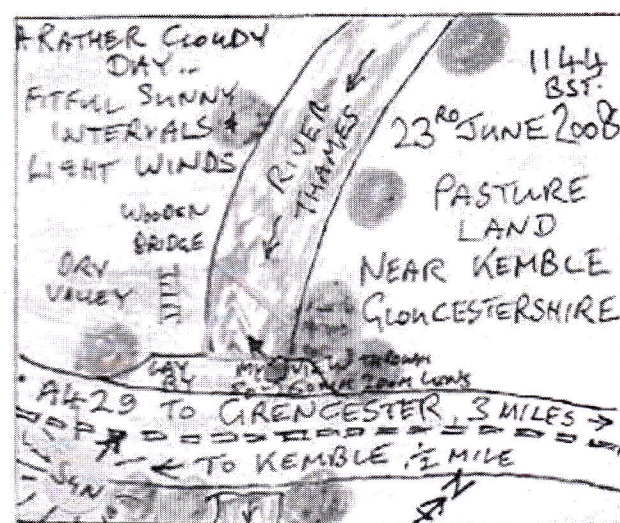 A RATHER CLOUDY
DAY...
FITFUL SUNNY
INTERVALS &
LIGHT WINDS
WOODEN
BRIDGE
DRY
VALLEY
RIVER
THAMES
1144
BST.
23RD JUNE 2008
PASTURE
LAND
NEAR KEMBLE
GLOUCESTERSHIRE
LAY
BY
MY VIEW THROUGH
ZOOM LENS
A429 TO CIRENCESTER, 3 MILES →
← TO KEMBLE, ½ MILE
SUN
N